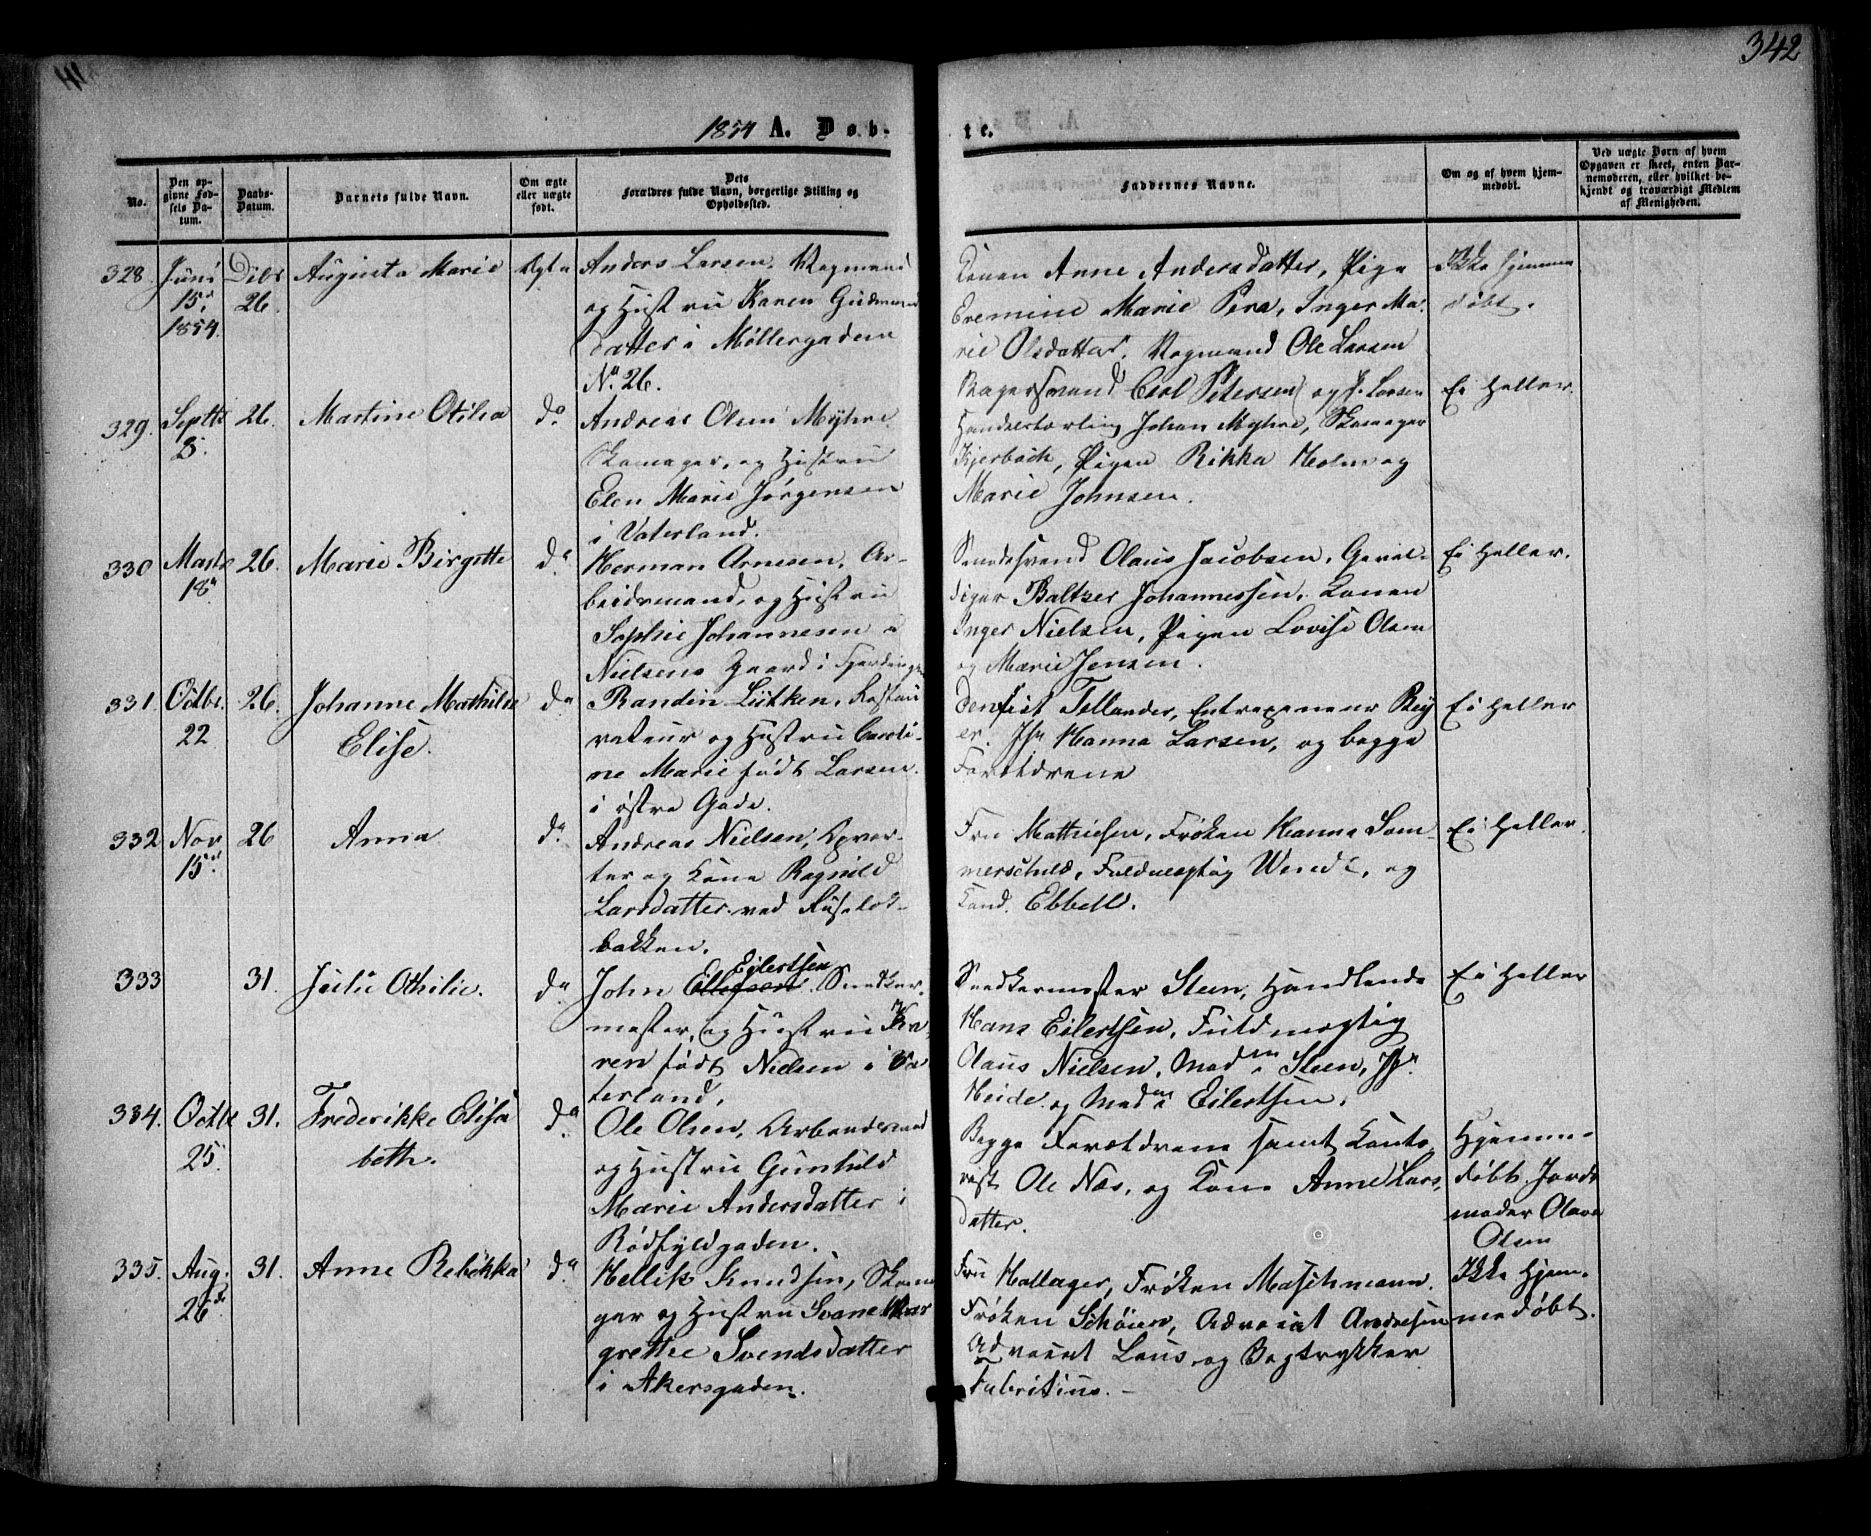 342
1854 A. Døb-
te.
No.
Den op-
givne Fød-
sels Da-
tum.
Daabs-
Datum.
Barnets fulde Navn.
Om ægte
eller uægte
født.
Dets
Forældres fulde Navn, borgerlige Stilling og
Opholdssted.
Faddernes Navne.
Om og af hvem hjem-
medøbt.
Ved uægte Børn af hvem
Opgaven er skeet, enten Bar-
nemoderen, eller hvilket be-
kjendt og troværdigt Medlem
af Menigheden.
328. Juni
15d
1854.
Dcbr
26.
Augusta Marie
Ægte
Anders Larsen, Vognmand
og Hustru Karen Gudmund
datter i Møllergadene
No. 26.
Konen Anne Andersdatter, Pige
Eremine Marie Pera, Inger Ma-
rie Olsdatter. Vognmand Ole Larsen
Bagersvend Carl Petersen og P. Larsen
Ikke hjemme
døbt.
329. Septb
3.
26.
Martine Otilia
do
Andreas Olsen Myhre
Skomager, og Hustru
Elen Marie Jørgensen
i Vaterland.
Handelsbetjening Johan Myhre, Skomager
Kjerbøck, Pigen Rikka Holm og
Marie Johnsen.
Ei heller.
330 Marts
18d
26.
Marie Birgitte
do
Herman Arnesen, Ar-
beidsmand, og Hustru
Sophie Johannesen i
Nielsens Gaard i Fjerdingen
Snedkersvend Olaus Jacobsen, Geval-
diger Baltzer Johannessen, Konen
Inger Nielsen, Pigen Lovise Olsen
og Marie Jensen.
Ei heller.
331. Octbr.
22
26.
Johanne Mathilde
Elise.
do
Randin Lütken, Restau
rateur og Hustru Caroli-
ne Marie født Larsen.
i østre Gade.
Tellander, Entrepeneur Rey
er. Jfr Hanna Larsen, og begge
Forældrene
Ei heller
332 Nov
15d
26
Anna
do
Andreas Nielsen, Qvar-
ter og Kone Ragnild
Larsdatter ved Ruseløk-
bakken.
Fru Mathiesen, Frøken Hanna Som-
merschild, Fuldmægtig Wendt, og
Cand. Ebbell.
Ei heller.
333
31.
Julie Othilie.
do
Eilertsen
John Ellefsen Snedker-
mester, og Hustru Ka-
ren født Nielsen i Va
terland.
Snedkermester Steen, Handlende
Hans Eilertsen, Fuldmægtig
Olaus Nielsen, Madm Steen, Jfr
Heide og Madm Eilertsen.
Ei heller
334. Octbr
25.
31.
Frederikke Elisa
beth.
do
Ole Olsen, Arbeidsmand
og Hustru Gunhild
Marie Andersdatter i
Rødfyldgaden.
Begge Forældrene samt Konto
rist Ole Næs, og Kone Anne Lars
datter.
Hjemme-
døbt. Jord-
moder Olava
Olsen
335. Aug.
26de
31.
Anne Rebekka
do
Hellik Knudsen, Skoma
ger og Hustru Svane Mar
grethe Svendsdatter
i Akersgaden.
Fru Hallager, Frøken Maschmann.
Frøken Schøien, Advocat Andresen
Advocat Lous og Bogtrykker
Fabritius. -
Ikke hjem-
medøbt.